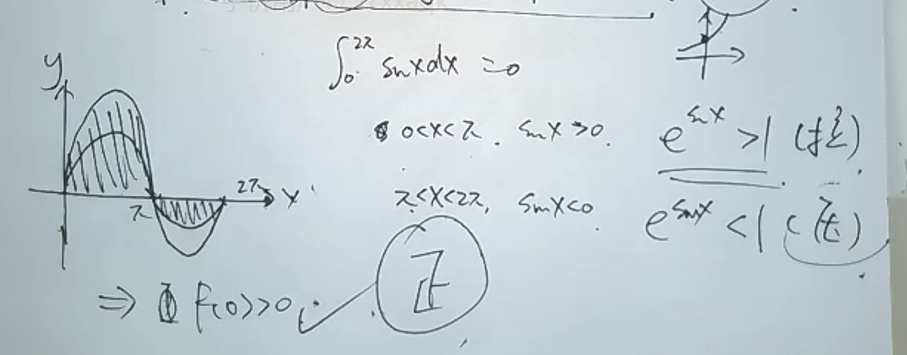 ∫₀^{2π} sinxdx = 0
y
0<x<π. sinx>0. e^{sinx}>1 (拉)
2π x
π
π<x<2π, sinx<0. e^{sinx}<1 (压)
⇒ F(0)>0. ✓ 正